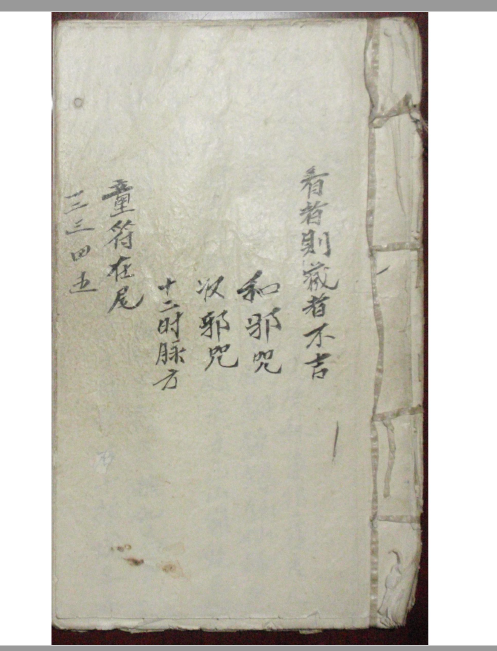 看者則藏者不吉
和邪咒
収邪咒
十二时脉方
童符在尾
一二三四五